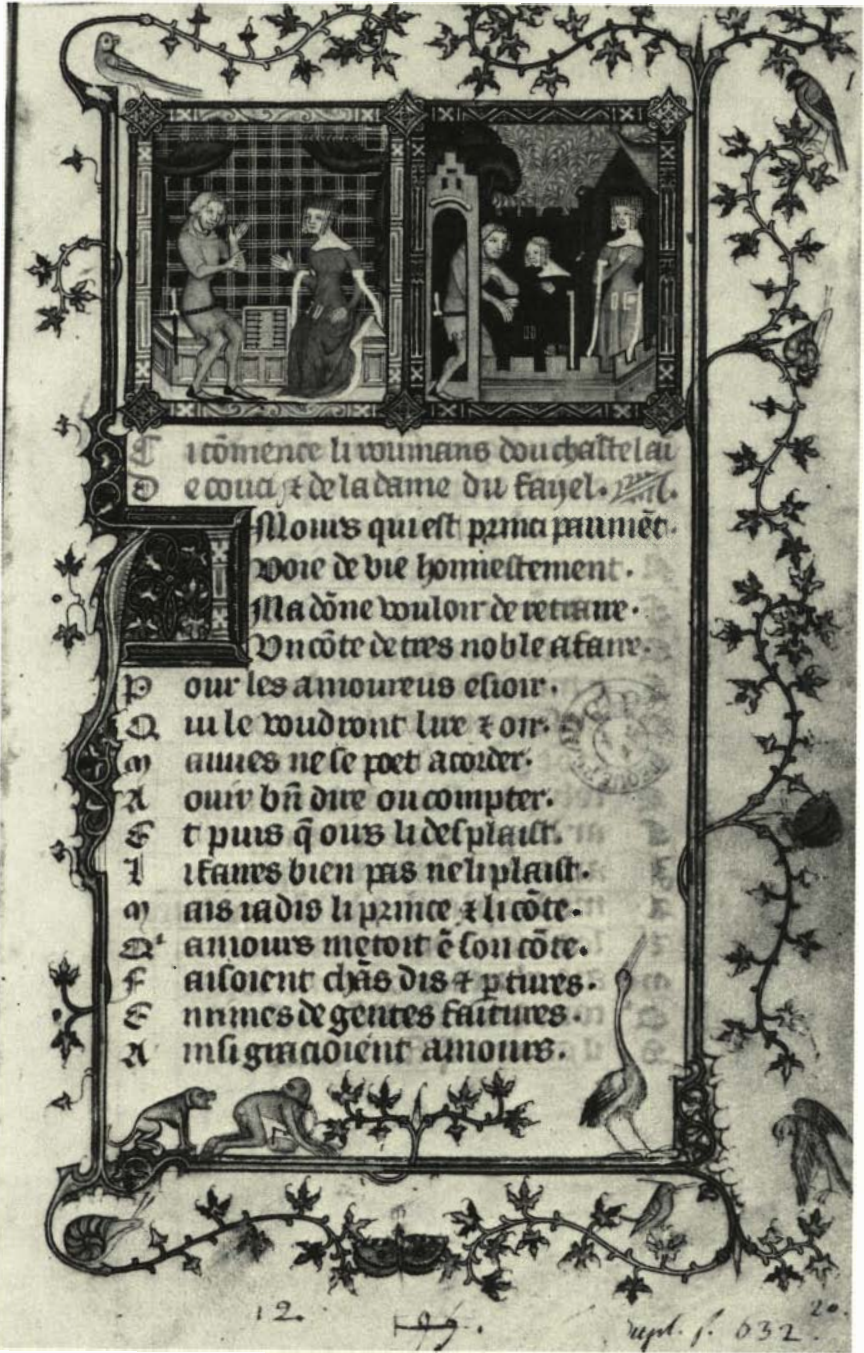 C i cõmence li roumans dou chastelai
D e couci ⁊ de la dame du faÿel.
A Mours qui est principaumẽt.
Voie de vie honniestement.
Ma dõne vouloir de retraire.
Vn cõte de tres noble afaire.
P our les amoureus esioir.
Q ui le voudront lire ⁊ oir.
M auues ne se poet acorder.
A ouir bñ dire ou compter.
E t puis q̃ ours li desplaist.
L i faires bien pas ne li plaist.
M ais iadis li prince ⁊ li cõte.
Q' amours metoit ẽ son cõte.
F aisoient chãs dis ⁊ ptures.
E n rimes de gentes faitures.
A insi gracioient amours.
12. 197. 20.
supl. f. 632